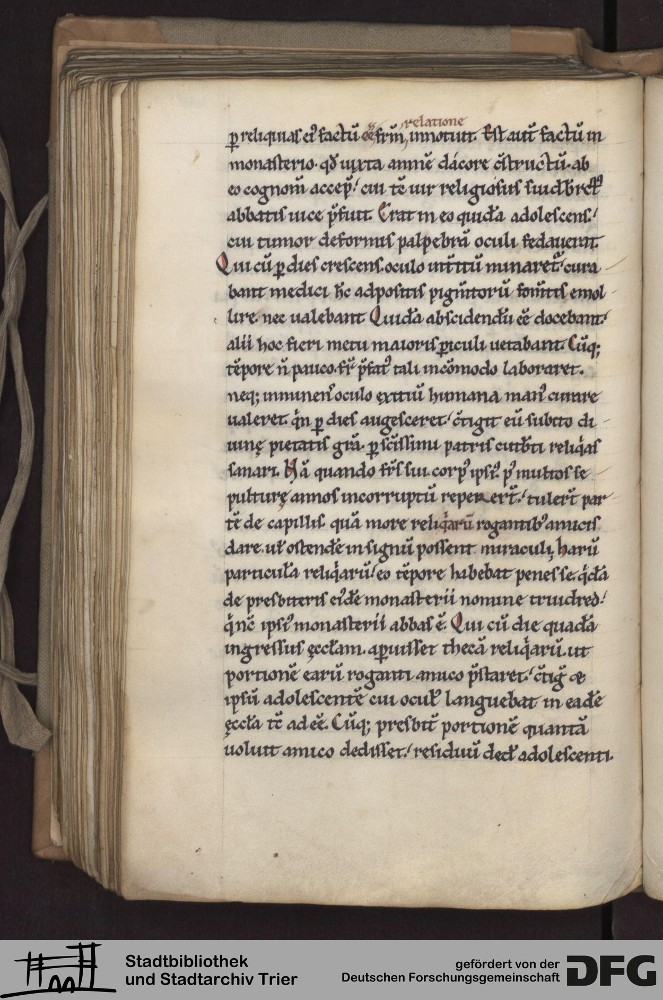 relatione
p̲ reliquias ei᷒ factū eē fr̄m̄ innotuit. Est aut̄ factū in
monasterio. qđ iuxta amnē dacore c̄structū. ab
eo cognom̄ accep̄. cui tc̄ uir religiosus suidbret᷒
abbatis uice p̄fuit. Erat in eo quidā adolescens.
cui tumor deformis palpebrā oculi fedauerat.
Qui cū p̲ dies crescens. oculo int̄itū minaret᷒. cura
bant medici hc̄ adpositis pigm̄torū fom̄tis emol
lire. nec ualebant. Quidā abscidendū eē docebant.
alii hoc fieri metu maioris p̲iculi uetabant. Cūq;
tēpore n̄ pauco. fr̄ p̄fat᷒ tali incōmodo laboraret.
neq; imminen᷒ oculo exitiū humana man᷒ curare
ualeret. q̇n p̲ dies augesceret. c̄tigit eū subito di
uinę pietatis gr̄a. p̲ sc̄issimi patris cutb̄ti reliq̇as
sanari. Nā quando fr̄s sui corp᷒ ipsi᷒. p᷒ multos se
pulturę annos incorruptū reperert̄. tulert̄ par
tē de capillis. quā more reliq̇arū rogantib᷒ amicis
dare. ut̄ ostendē in signū possent miraculi. harū
particulā reliq̇arū. eo tēpore habebat penes se. q̇dā
de presbiteris ei᷒dē monasterii nomine truidred.
q̇ nc̄ ipsi᷒ monasterii abbas ē. Qui cū die quadā
ingressus ęcclam. ap̲uisset thecā reliq̇arū. ut
portionē earū roganti amico p̄staret. c̄tig̈ &
ipsū adolescentē cui ocul᷒ languebat in eadē
ęccla tc̄ adeē. Cūq; presbit̄ portionē quantā
uoluit amico dedisset. residuū ded̄ adolescenti.
Stadtbibliothek
und Stadtarchiv Trier
gefördert von der
Deutschen Forschungsgemeinschaft
DFG